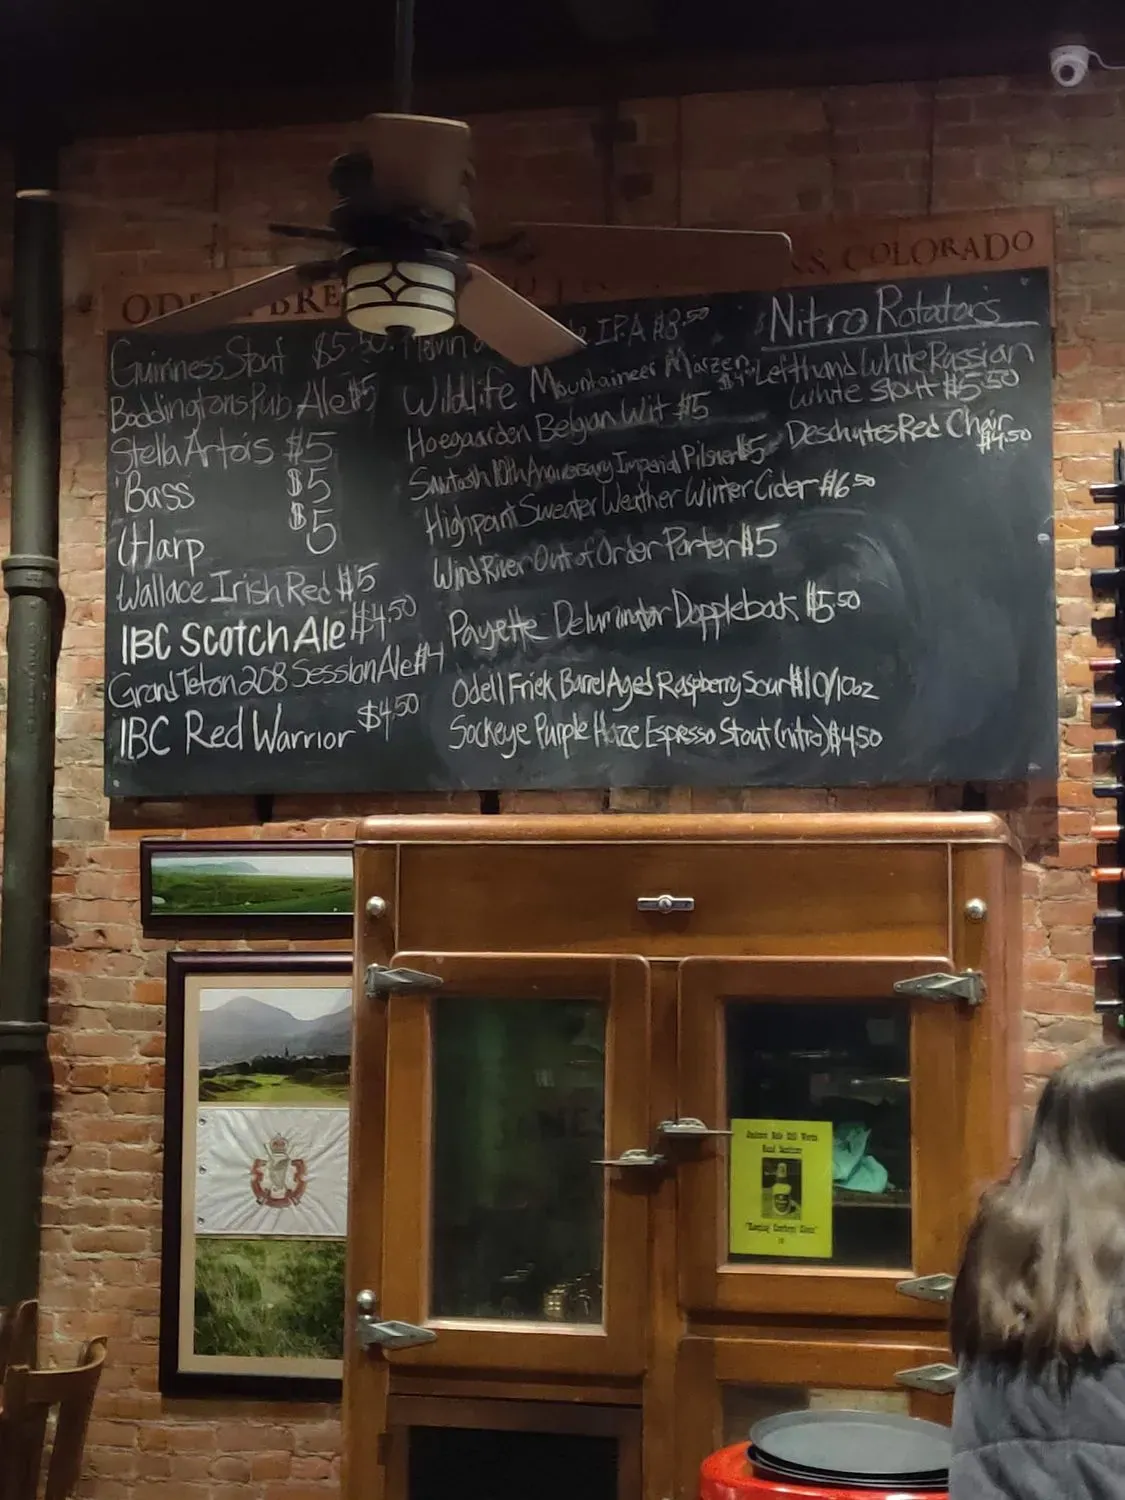 COLORADO
Guinness Stout $5.50
Boddingtons Pub Ale $5
Stella Artois $5
Bass $5
Harp $5
Wallace Irish Red $5
IBC Scotch Ale $4.50
Grand Teton 208 Session Ale $4
IBC Red Warrior $4.50
IPA $8.50
Wildlife Mountaineer Marzen
Hoegaarden Belgian Wit $5
Sawtooth 10th Anniversary Imperial Pilsner $5
Highpoint Sweater Weather Winter Cider $6.50
Wind River Out of Order Porter $5
Payette Deluminator Doppleback $5.50
Odell Friek Barrel Aged Raspberry Sour $10/10oz
Sockeye Purple Haze Espresso Stout (nitro) $4.50
Nitro Rotators
Lefthand White Russian
White Stout $5.50
Deschutes Red Chair
$4.50